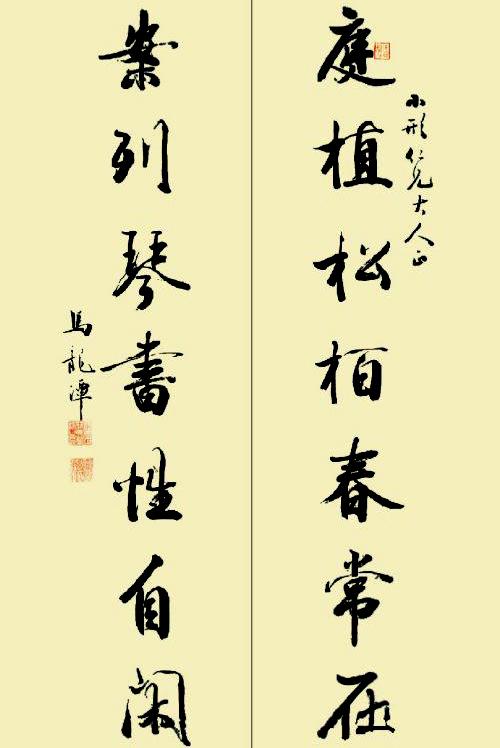 庭植松柏春常在
小彤仁兄大人正
案列琴書性自閑
馬龍潭